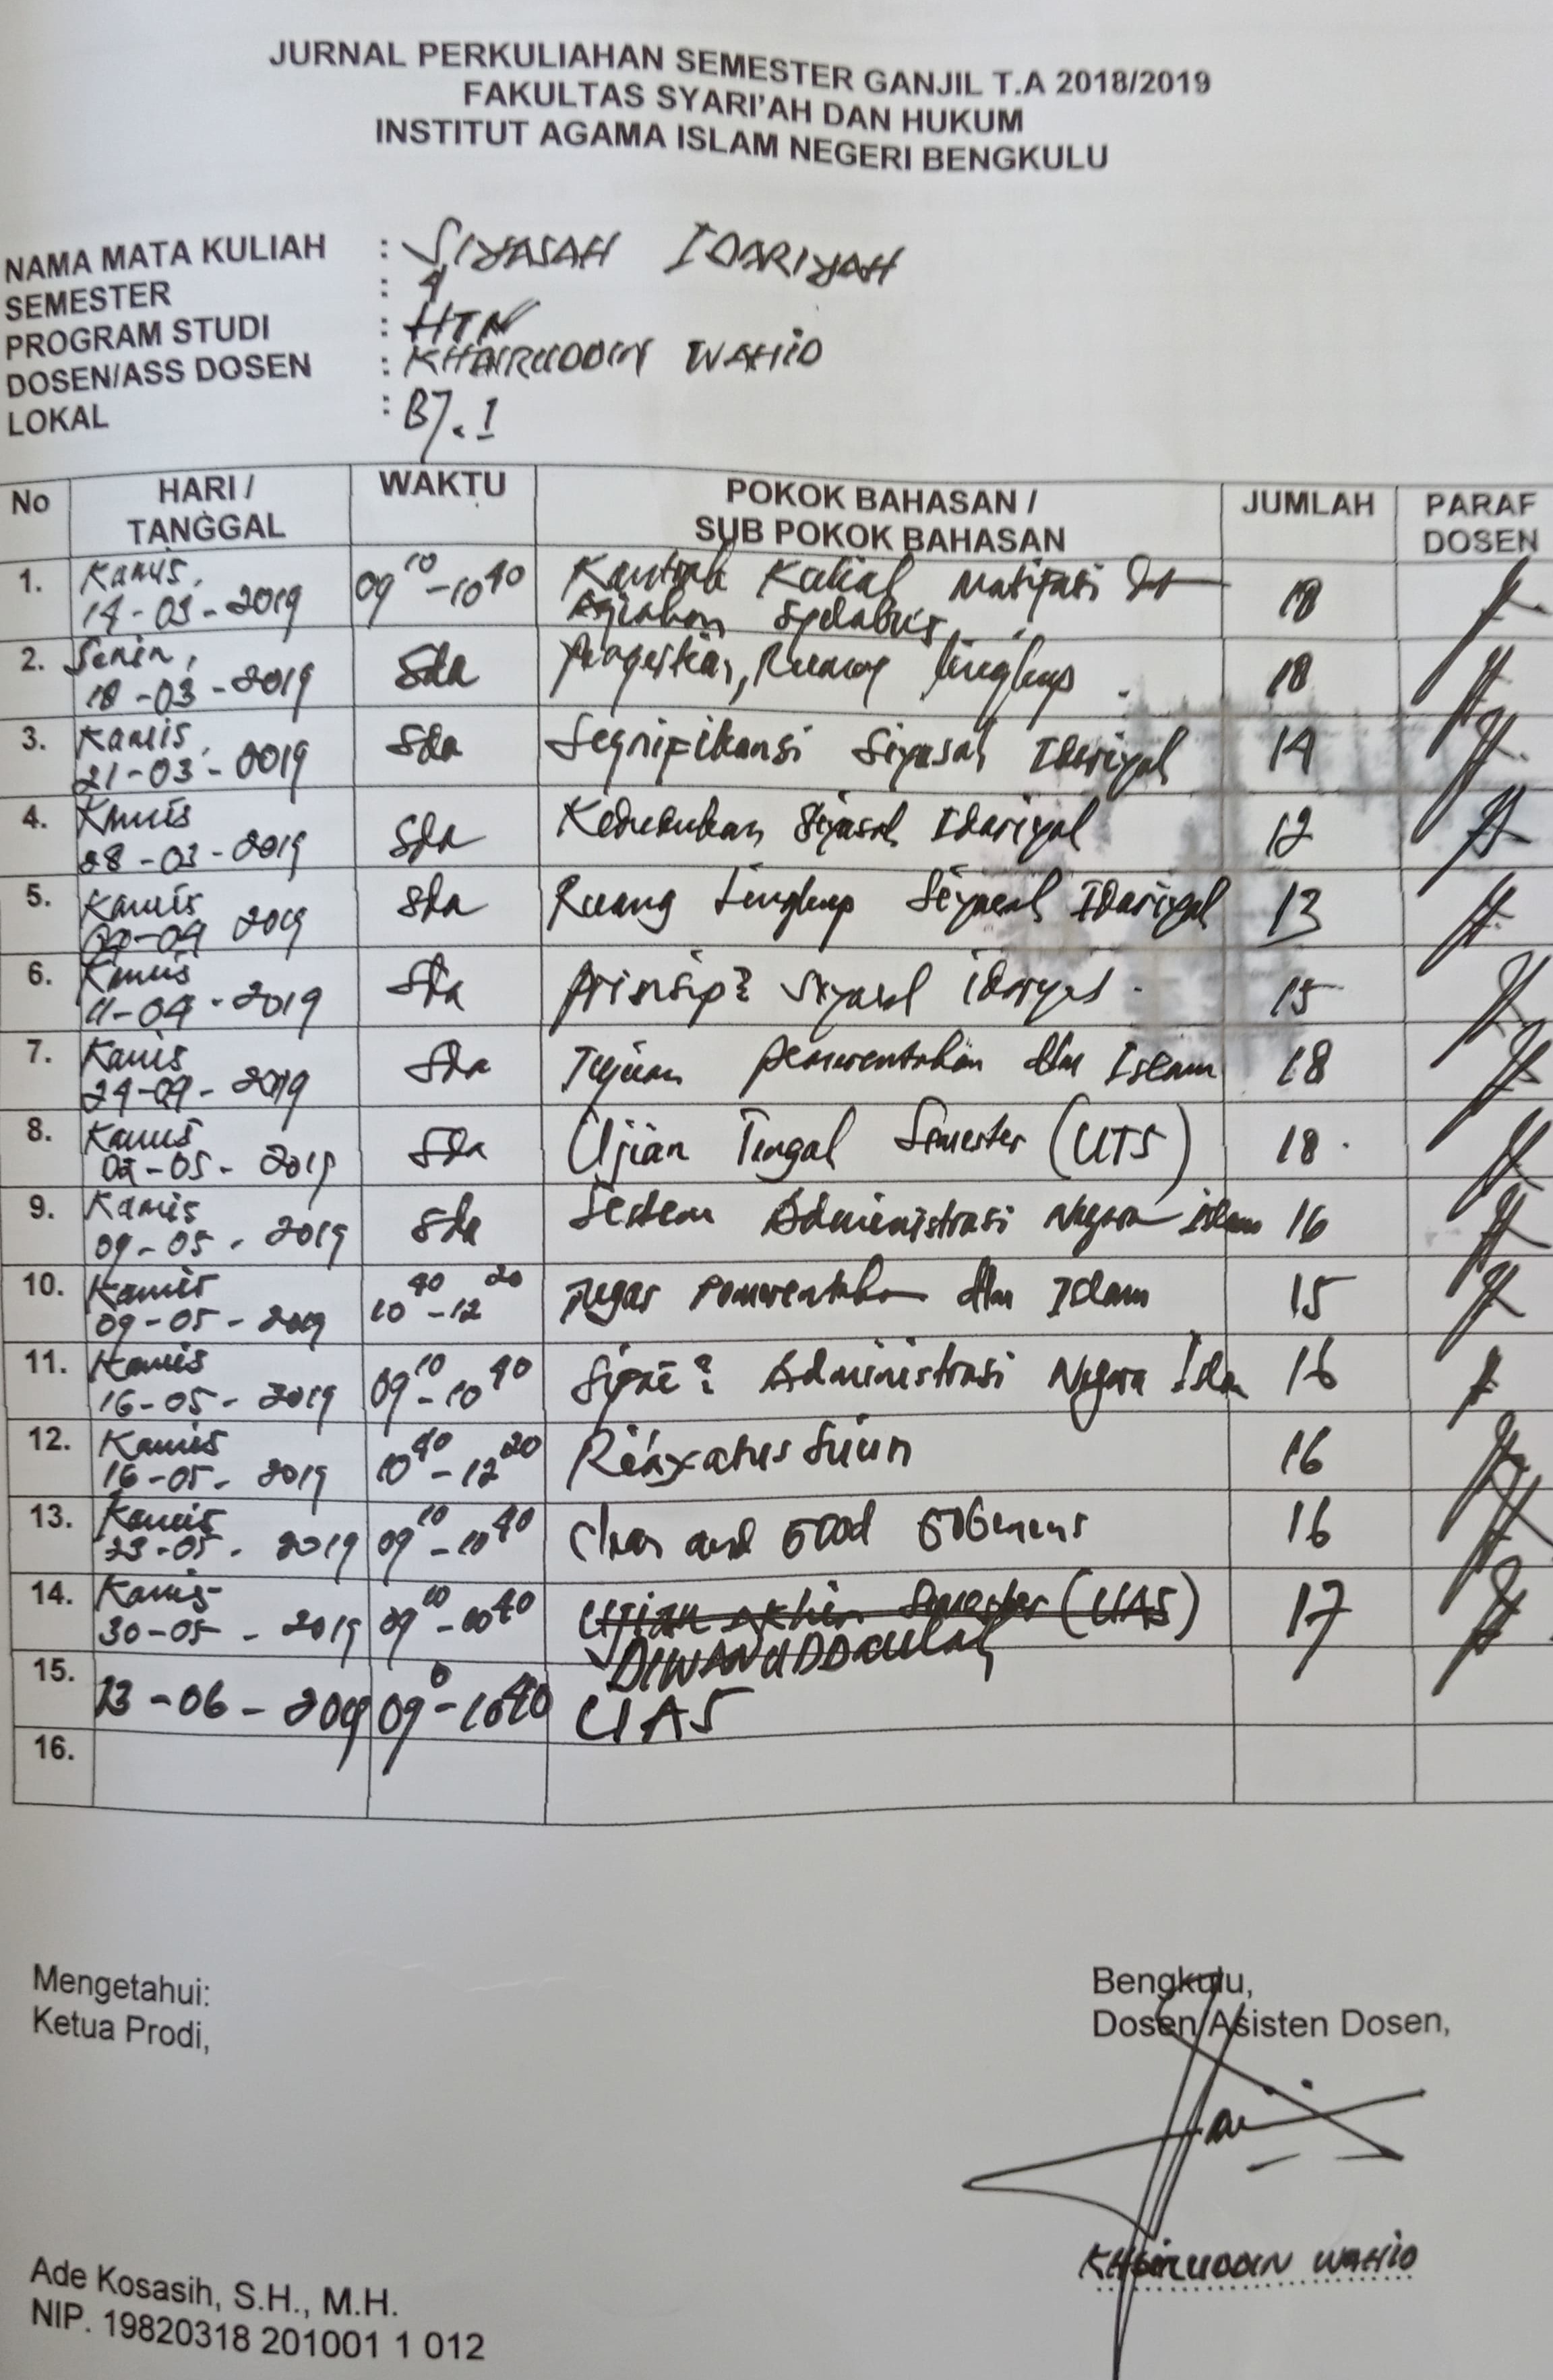 JURNAL PERKULIAHAN SEMESTER GANJIL T.A 2018/2019
FAKULTAS SYARI'AH DAN HUKUM
INSTITUT AGAMA ISLAM NEGERI BENGKULU
NAMA MATA KULIAH : SIYASAH IDARIYAH
SEMESTER : 4
PROGRAM STUDI : HTN
DOSEN/ASS DOSEN : KHAIRUDDIN WAHID
LOKAL : B7.1
No HARI / TANGGAL WAKTU POKOK BAHASAN / SUB POKOK BAHASAN JUMLAH PARAF DOSEN
1. Kamis, 14-03-2019 09 10 - 10 40 Kontrak Kuliah Motivasi Syelabus 18
2. Senin, 18-03-2019 Sda Pengertian, Ruang lingkup 18
3. Kamis, 21-03-2019 Sda Segnifikansi Siyasah Idariyah 14
4. Kamis 28-03-2019 Sda Kedudukan Siyasah Idariyah 12
5. Kamis 04-04 2019 Sda Ruang Lingkup Siyasah Idariyah 13
6. Kamis 11-04-2019 Sda prinsip2 Siyasah idariyah 15
7. Kamis 24-04-2019 Sda Tujuan pemerentahan dlm Islam 18
8. Kamis 02-05-2019 Sda Ujian Tengah Semester (UTS) 18
9. Kamis 09-05-2019 Sda Sestem Administrasi Negara Islam 16
10. Kamis 09-05-2019 10 40 - 12 20 Tugas Pemerentahan dlm Islam 15
11. Kamis 16-05-2019 09 10 - 10 40 Administrasi Negara Islam 16
12. Kamis 16-05-2019 10 40 - 12 20 16
13. Kamis 23-05-2019 09 10 - 10 40 and Good 16
14. Kamis 30-05-2019 09 10 - 10 40 Ujian Akhir Semester (UAS) 17
15. 13-06-2019 09 - 10 40 UAS
16.
Mengetahui:
Ketua Prodi,
Bengkulu,
Dosen/Asisten Dosen,
KHAIRUDDIN WAHID
Ade Kosasih, S.H., M.H.
NIP. 19820318 201001 1 012